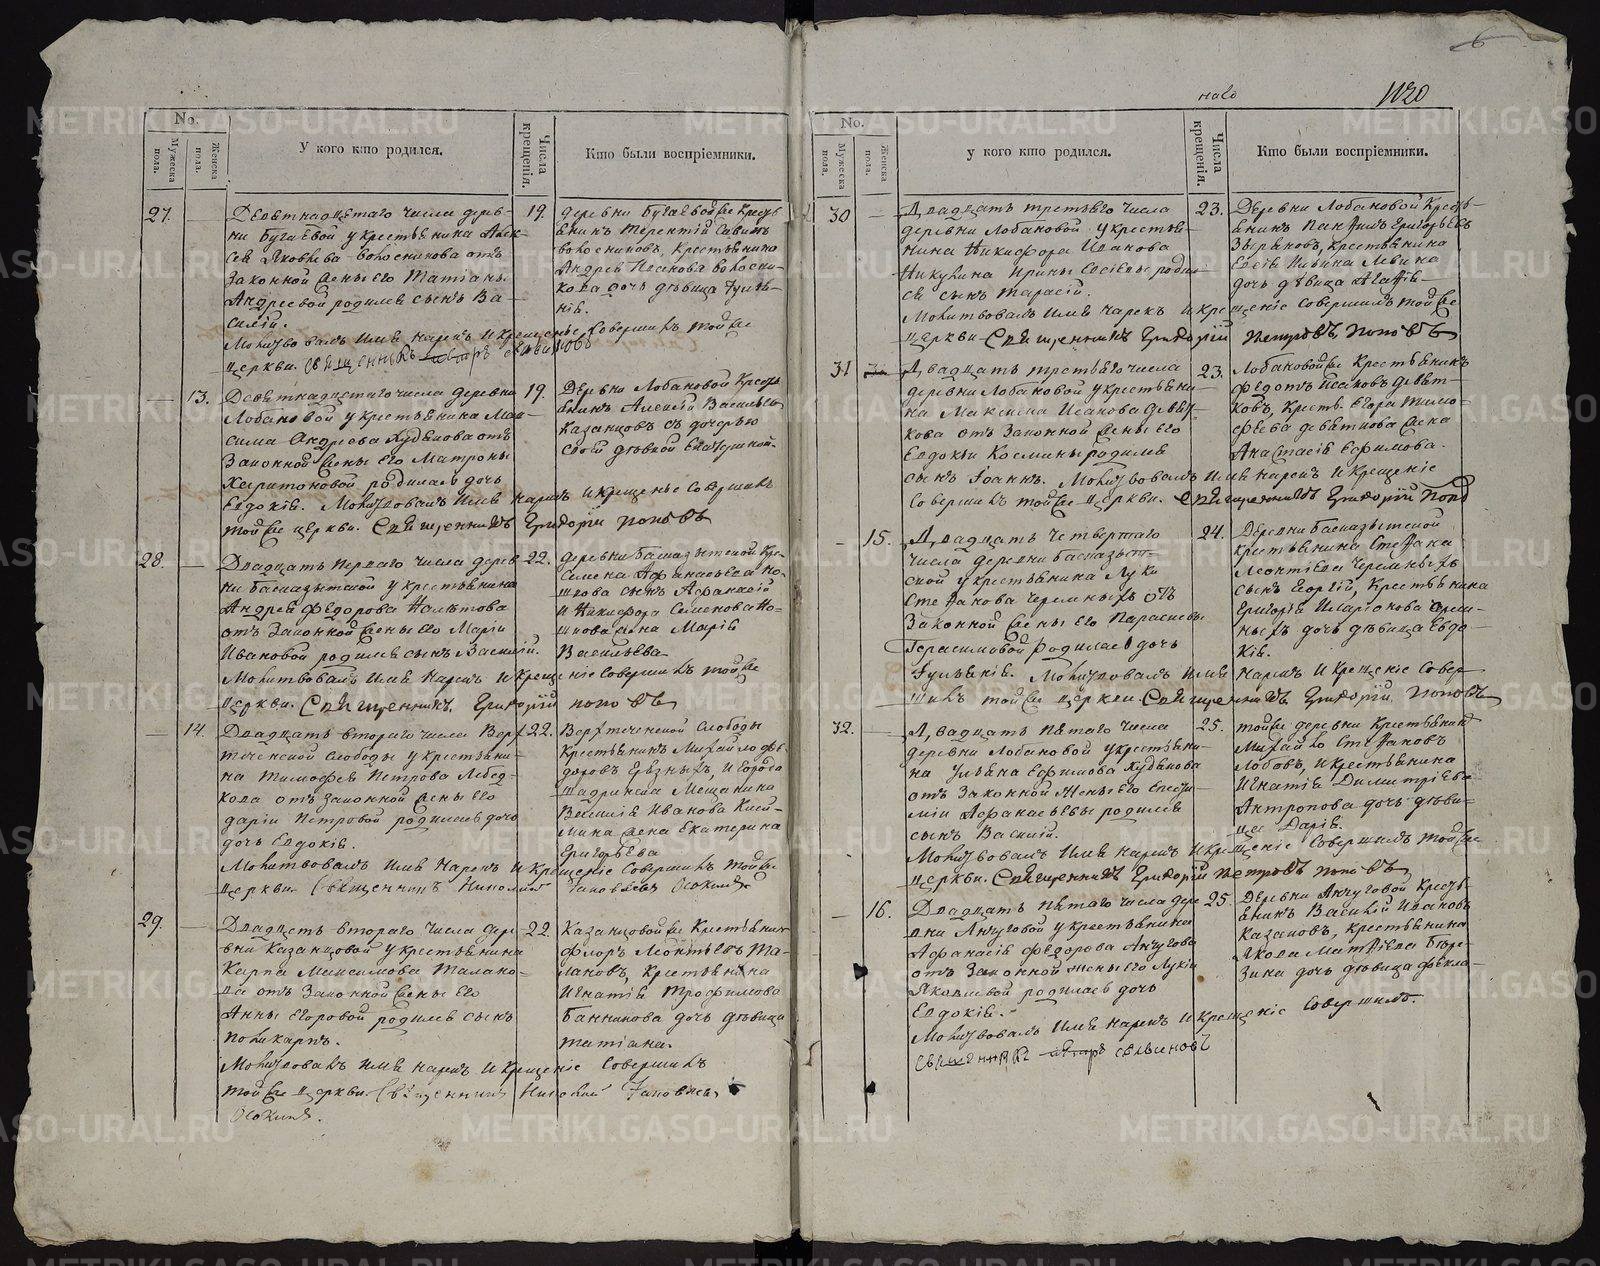 6
наго
1120
No.
Мужеска пола.
Женска пола.
У кого кто родился.
Числа крещенія.
Кто были воспріемники.
27.
Девятнадцатаго числа дерев-
ни Бугаевой у крестьянина Алек-
сея Яковлева
законной жены его Татіаны
Андреевой родился сынъ Ва-
силій.
Молитвовалъ имя нарекъ и крещеніе совершилъ тойже
церкви священникъ Петръ Селвиновъ
19.
деревни Бугаевойже кресть-
янинъ Терентій Савинъ
крестьянина
Андрея
кова дочь девица Іуліа-
нія.
13.
Девятнадцатаго числа деревни
Лобановой у крестьянина Мак-
сима Андреева Худякова отъ
законной жены его Матроны
Харитоновой родилась дочь
Евдокія. Молитвовалъ имя нарекъ и крещеніе совершилъ
тойже церкви. Священникъ Григорій Поповъ
19.
Деревни Лобановой кресть-
янинъ Алексій Васильевъ
Казанцовъ съ дочерью
своей девкой Екатериной.
28.
Двадцать перваго числа дерев-
ни Баснаытской у крестьянина
Андрея Федорова
отъ законной жены его Маріи
Ивановой родился сынъ Василій.
Молитвовалъ имя нарекъ и крещеніе совершилъ тойже
церкви. Священникъ Григорій Поповъ
22.
деревни кре.
Семена Афанасьева
сынъ Афанасій
и Никифора Семенова
жена Марія
Васильева
14.
Двадцать втораго числа Верх-
теченской слободы у крестьяни-
на Тимофея Петрова Лебед-
кова отъ законной жены его
Даріи Петровой родилась дочь
дочь Евдокія.
Молитвовалъ имя нарекъ и крещеніе совершилъ тойже
церкви Священникъ Николай Іаковлевъ Осокинъ
22.
Верхтеченской слободы
крестьянинъ Михайло Фе-
доровъ Грязныхъ, и города
Шадринска мещанина
Василія Иванова
жена Екатерина
Григорьева
29.
Двадцать втораго числа дере-
вни Казанцовой у крестьянина
Карпа Максимова Талано-
ва отъ законной жены его
Анны Егоровой родился сынъ
Поликарпъ.
Молитвовалъ имя нарекъ и крещеніе совершилъ
тойже церкви Священникъ Николай Іаковлевъ
Осокинъ.
22.
Казанцовойже крестьянинъ
Флоръ Леонтьевъ Та-
лановъ, крестьянина
Игнатія Трофимова
Банникова дочь девица
Татіана.
No.
Мужеска пола.
Женска пола.
у кого кто родился.
Числа крещенія.
Кто были воспріемники.
30
Двадцать третьяго числа
деревни Лобановой у крестья-
нина Никифора Иванова
Никулина Ирины родил-
ся сынъ Тарасій.
Молитвовалъ имя нарекъ и крещеніе совершилъ тойже
церкви Священникъ Григорій Петровъ Поповъ
23.
Деревни Лобановой кресть-
янинъ Панфилъ Григорьевъ
Зыряновъ, крестьянина
Ильина Левина
дочь девица Агафія
31
Двадцать третьяго числа
деревни Лобановой у крестьяни-
на Максима Исакова Девят-
кова отъ законной жены его
Евдокіи Космины родился
сынъ Іоаннъ. Молитвовалъ имя нарекъ и крещеніе
совершилъ тойже церкви. Священникъ Григорій Попо
23.
Лобановойже крестьянинъ
Федотъ Исаковъ Девят-
ковъ, кресть. Егора Тимо-
феева Девяткова жена
Анастасія Ефимова.
15.
Двадцать четвертаго
числа деревни
ской у крестьянина Луки
Стефанова Черемныхъ отъ
законной жены его Парасковьи
Герасимовой родилась дочь
Іуліанія. Молитвовалъ имя нарекъ и крещеніе совер-
шилъ тойже церкви Священникъ Григорій Поповъ
24.
Деревни
крестьянина Стефана
Леонтіева Черемныхъ
сынъ Георгій, крестьянина
Григорія Иларіонова Черем-
ныхъ дочь девица Евдо-
кія.
32.
Двадцать пятаго числа
деревни Лобановой у крестьяни-
на Ульяна Ефимова Худякова
отъ законной жены его
Афанасьевы родился
сынъ Василій.
Молитвовалъ имя нарекъ и крещеніе совершилъ тойже
церкви. Священникъ Григорій Петровъ Поповъ
25.
тойже деревни крестьянинъ
Михайло Стефановъ
Лобовъ, и крестьянина
Игнатія Димитріева
Антропова дочь деви-
ца Дарія.
16.
Двадцать пятаго числа дере
вни Анчуговой у крестьянина
Афанасія Федорова Анчугова
отъ законной жены его Лукіи
Яковлевой родилась дочь
Евдокія.
Молитвовалъ имя нарекъ и крещеніе совершилъ.
священникъ Петръ Селвиновъ
25.
Деревни Анчуговой кресть-
янинъ Василій Ивановъ
Казаковъ, крестьянина
Якова Матвіева Бере-
зина дочь девица Фекла.
METRIKI.GASO-URAL.RU